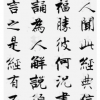 人聞此經典
福勝彼何況書
誦為人解說
言之是經有